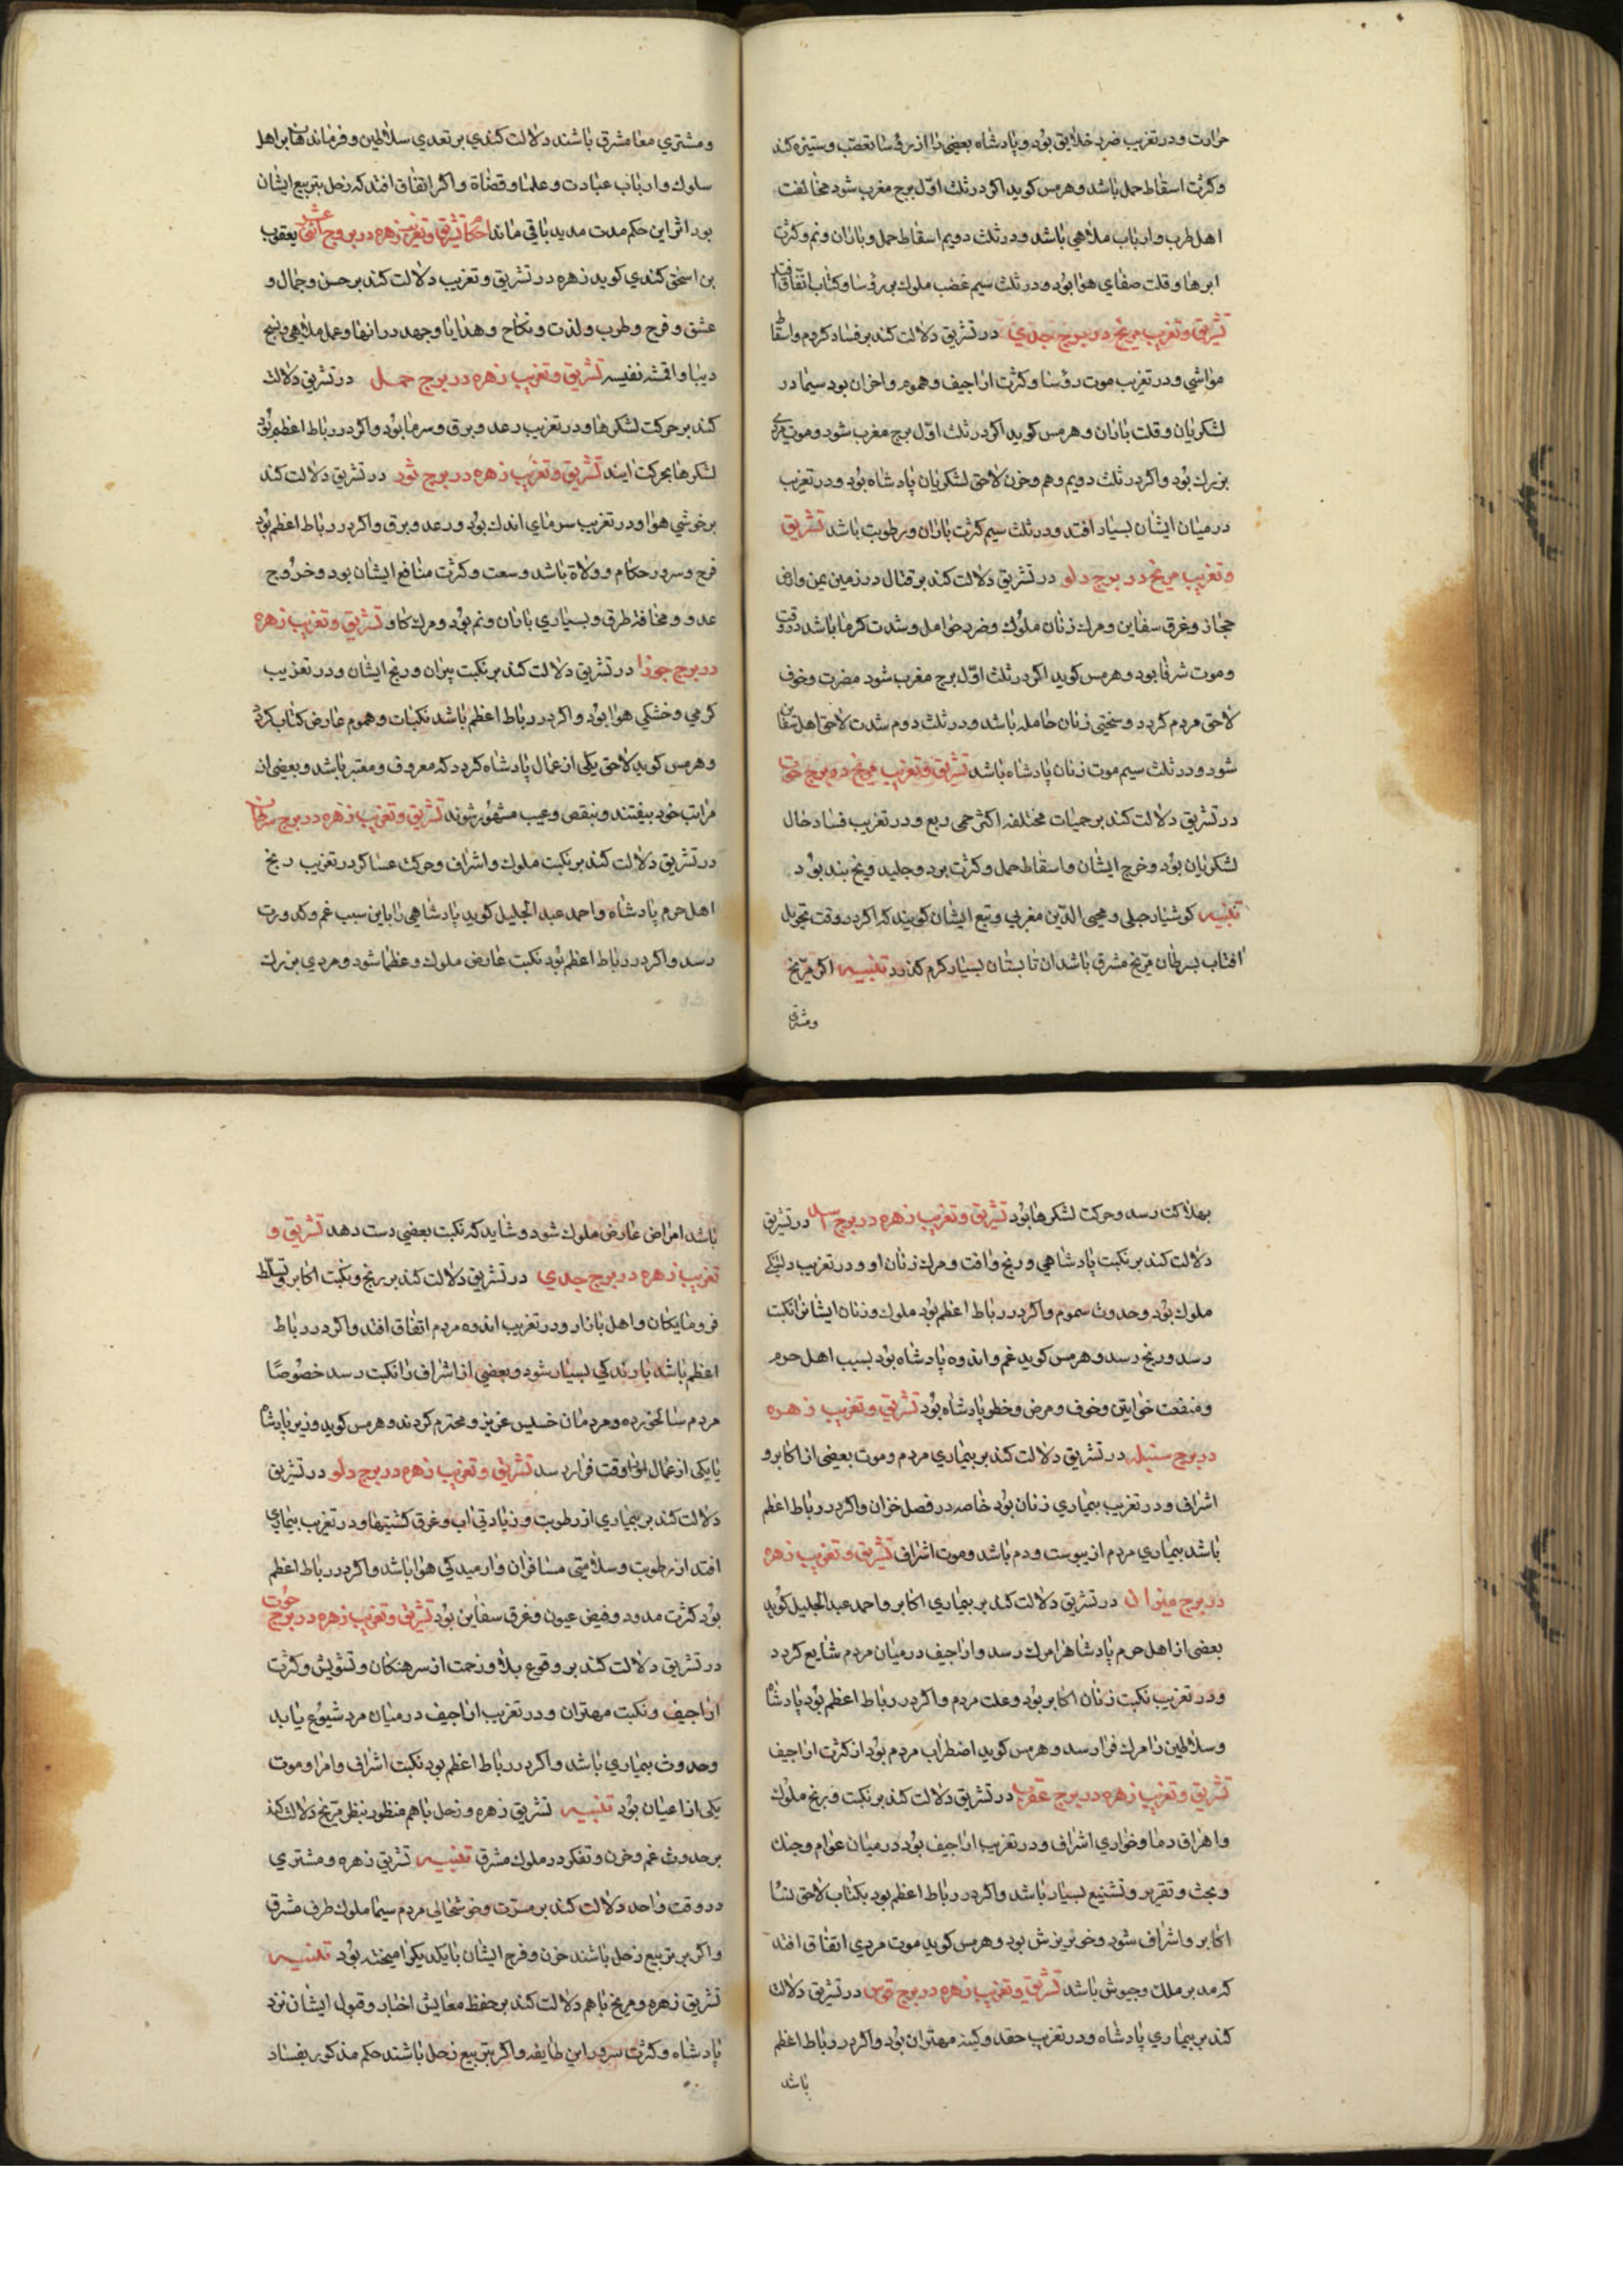 حرارت و در تغریب ضرد خلایق بود و پادشاه بعضی را از رؤسا تعصّب و ستیزه کند
و کثرت اسقاط حمل باشد و هرمس کوید اکر در ثلث اوّل برج مغرب شود مخالفت
اهل طرب و ارباب ملاهی باشد و در ثلث دویم اسقاط حمل و باران و نم و کثرت
ابرها و قلت صفای هوا بود و در ثلث سیم غضب ملوك بر رؤسا و کتاب اتفاق افتد
تشریق و تغریب مریخ در برج جدی در تشریق دلالت کند بر فساد کردم و اسقاط
مواشی و در تغریب موت رؤسا و کثرت اراجیف و هموم و احزان بود سیما در
لشکریان و قلت باران و هرمس کوید اکر در ثلث اوّل برج مغرب شود و موت مردی
بزرك بود و اکر در ثلث دویم و هم و حزن لاحق لشکریان پادشاه بود و در تغریب
در میان ایشان بسیار افتد و در ثلث سیم کثرت باران و رطوبت باشد تشریق
و تغریب مریخ در برج دلو در تشریق دلالت کند بر قتال در زمین یمن و ارض
حجاز و غرق سفاین و مرك زنان ملوك و ضرد حوامل و شدت کرما باشد در وقت
و موت شرفا بود و هرمس کوید اکر در ثلث اوّل برج مغرب شود مضرت و خوف
لاحق مردم کردد و سختی زنان حامله باشد و در ثلث دوم شدت لاحق اهل سفاین
شود و در ثلث سیم موت زنان پادشاه باشد تشریق و تغریب مریخ در برج حوت
در تشریق دلالت کند بر حمیات مختلفه اکثر حمی ربع و در تغریب فساد حال
لشکریان بود و خرج ایشان و اسقاط حمل و کثرت برد و جلید و یخ بند بود
تنبیه کوشیار جیلی و محیی الدّین مغربی و تبع ایشان کویند که اکر در وقت تحویل
افتاب بسرطان مرّیخ مشرق باشد ان تابستان بسیار کرم کذرد تنبیه اکر مرّیخ
و مشتری
و مشتری معا مشرق باشند دلالت کندی بر تعدی سلاطین و فرماندهان بر اهل
سلوك و ارباب عبادت و علما و قضاة و اکر اتفاق افتد که زحل بتربیع ایشان
بود اثر این حکم مدت مدید باقی ماند احکام تشریق و تغریب زهره در بروج اثنی عشر یعقوب
بن اسحق کندی کوید زهره در تشریق و تغریب دلالت کند بر حسن و جمال و
عشق و فرح و طرب و لذت و نکاح و هدایا و جهد در انها و عمل ملاهی و نسج
دیبا و اقمشه نفیسه تشریق و تغریب زهره در برج حمل در تشریق دلالت
کند بر حرکت لشکرها و در تغریب رعد و برق و سرما بود و اکر در رباط اعظم بود
لشکرها بحرکت ایند تشریق و تغریب زهره در برج ثور در تشریق دلالت کند
بر خوشی هوا و در تغریب سرمای اندك بود و رعد و برق و اکر در رباط اعظم بود
فرح و سرور حکام و ولاة باشد و سعت و کثرت منافع ایشان بود و خروج
عدو و مخافة طرق و بسیاری باران و نم بود و مرك کاو تشریق و تغریب زهره
در برج جوزا در تشریق دلالت کند بر نکبت پیران و رنج ایشان و در تغریب
کرمی و خشکی هوا بود و اکر در رباط اعظم باشد نکبات و هموم عارض کتاب کردد
و هرمس کوید لاحق یکی از عمال پادشاه کردد که معروف و معتبر باشد و بعضی از
مراتب خود بیفتند و بنقص و عیب مشهور شوند تشریق و تغریب زهره در برج سرطان
در تشریق دلالت کند بر نکبت ملوك و اشراف و حرکت عساکر در تغریب رنج
اهل حرم پادشاه و احمد عبد الجلیل کوید پادشاهی را باین سبب غم و کدورت
رسد و اکر در رباط اعظم بود نکبت عارض ملوك و عظما شود و مردی بزرك
بهلاکت رسد و حرکت لشکرها بود تشریق و تغریب زهره در برج اسد در تشریق
دلالت کند بر نکبت پادشاهی و رنج و افت و مرك زنان او و در تغریب دلتنکی
ملوك بود و حدوث سموم و اکر در رباط اعظم بود ملوك و زنان ایشانرا نکبت
رسد و رنج رسد و هرمس کوید غم و اندوه پادشاه بود بسبب اهل حرم
و منفعت خواتین و خوف و مرض و خطر پادشاه بود تشریق و تغریب زهره
در برج سنبله در تشریق دلالت کند بر بیماری مردم و موت بعضی از اکابر و
اشراف و در تغریب بیماری زنان بود خاصه در فصل خزان و اکر در رباط اعظم
باشد بیماری مردم از یبوست و دم باشد و موت اشراف تشریق و تغریب زهره
در برج میزان در تشریق دلالت کند بر بیماری اکابر و احمد عبد الجلیل کوید
بعضی از اهل حرم پادشاهرا مرك رسد و اراجیف در میان مردم شایع کردد
و در تغریب نکبت زنان اکابر بود و علت مردم و اکر در رباط اعظم بود پادشاه
و سلاطین را مرك فرا رسد و هرمس کوید اضطراب مردم بود از کثرت اراجیف
تشریق و تغریب زهره در برج عقرب در تشریق دلالت کند بر نکبت و رنج ملوك
و اهراق دما و خواری اشراف و در تغریب اراجیف بود در میان عوام و جنك
و بحث و تقریر و تشنیع بسیار باشد و اکر در رباط اعظم بود بکتاب لاحق نسا
اکابر و اشراف شود و خونریزش بود و هرمس کوید موت مردی اتفاق افتد
که مدبر ملك و جیوش باشد تشریق و تغریب زهره در برج قوس در تشریق دلالت
کند بر بیماری پادشاه و در تغریب حقد و کینه مهتران بود و اکر در رباط اعظم
باشد
باشد امراض عارض ملوك شود و شاید که نکبت بعضی دست دهد تشریق و
تغریب زهره در برج جدی در تشریق دلالت کند بر رنج و نکبت اکابر و تسلّط
فرومایکان و اهل بازار و در تغریب اندوه مردم اتفاق افتد و اکر در رباط
اعظم باشد بارندکی بسیار شود و بعضی از اشراف را نکبت رسد خصوصًا
مردم سالخورده و مردمان خسیس عزیز و محترم کردند و هرمس کوید وزیر پادشاه
یا یکی از عمال وقت فرا رسد تشریق و تغریب زهره در برج دلو در تشریق
دلالت کند بر بیماری از رطوبت و زیادتی اب و غرق کشتیها و در تغریب بیماری
افتد از رطوبت و سلامتی مسافران و ارمیدکی هوا باشد و اکر در رباط اعظم
بود کثرت مدود و فیض عیون و غرق سفاین بود تشریق و تغریب زهره در برج حوت
در تشریق دلالت کند بر وقوع بلا و زحمت از سرهنکان و تشویش و کثرت
اراجیف و نکبت مهتران و در تغریب اراجیف در میان مرد شیوع یابد
و حدوث بیماری باشد و اکر در رباط اعظم بود نکبت اشراف و امرا و موت
یکی از اعیان بود تنبیه تشریق زهره و زحل باهم منظور بنظر مرّیخ دلالت کند
بر حدوث غم و حزن و تفکر در ملوك مشرق تنبیه تشریق زهره و مشتری
در وقت واحد دلالت کند بر مسرّت و خوشحالی مردم سیما ملوك طرف مشرق
و اکر بر تربیع زحل باشند حزن و فرح ایشان با یکدیکر امیخته بود تنبیه
تشریق زهره و مریخ باهم دلالت کند بر حفظ معایش اخیار و قبول ایشان نزد
پادشاه و کثرت سرور این طایفه و اکر بتربیع زحل باشند حکم مذکور بفساد